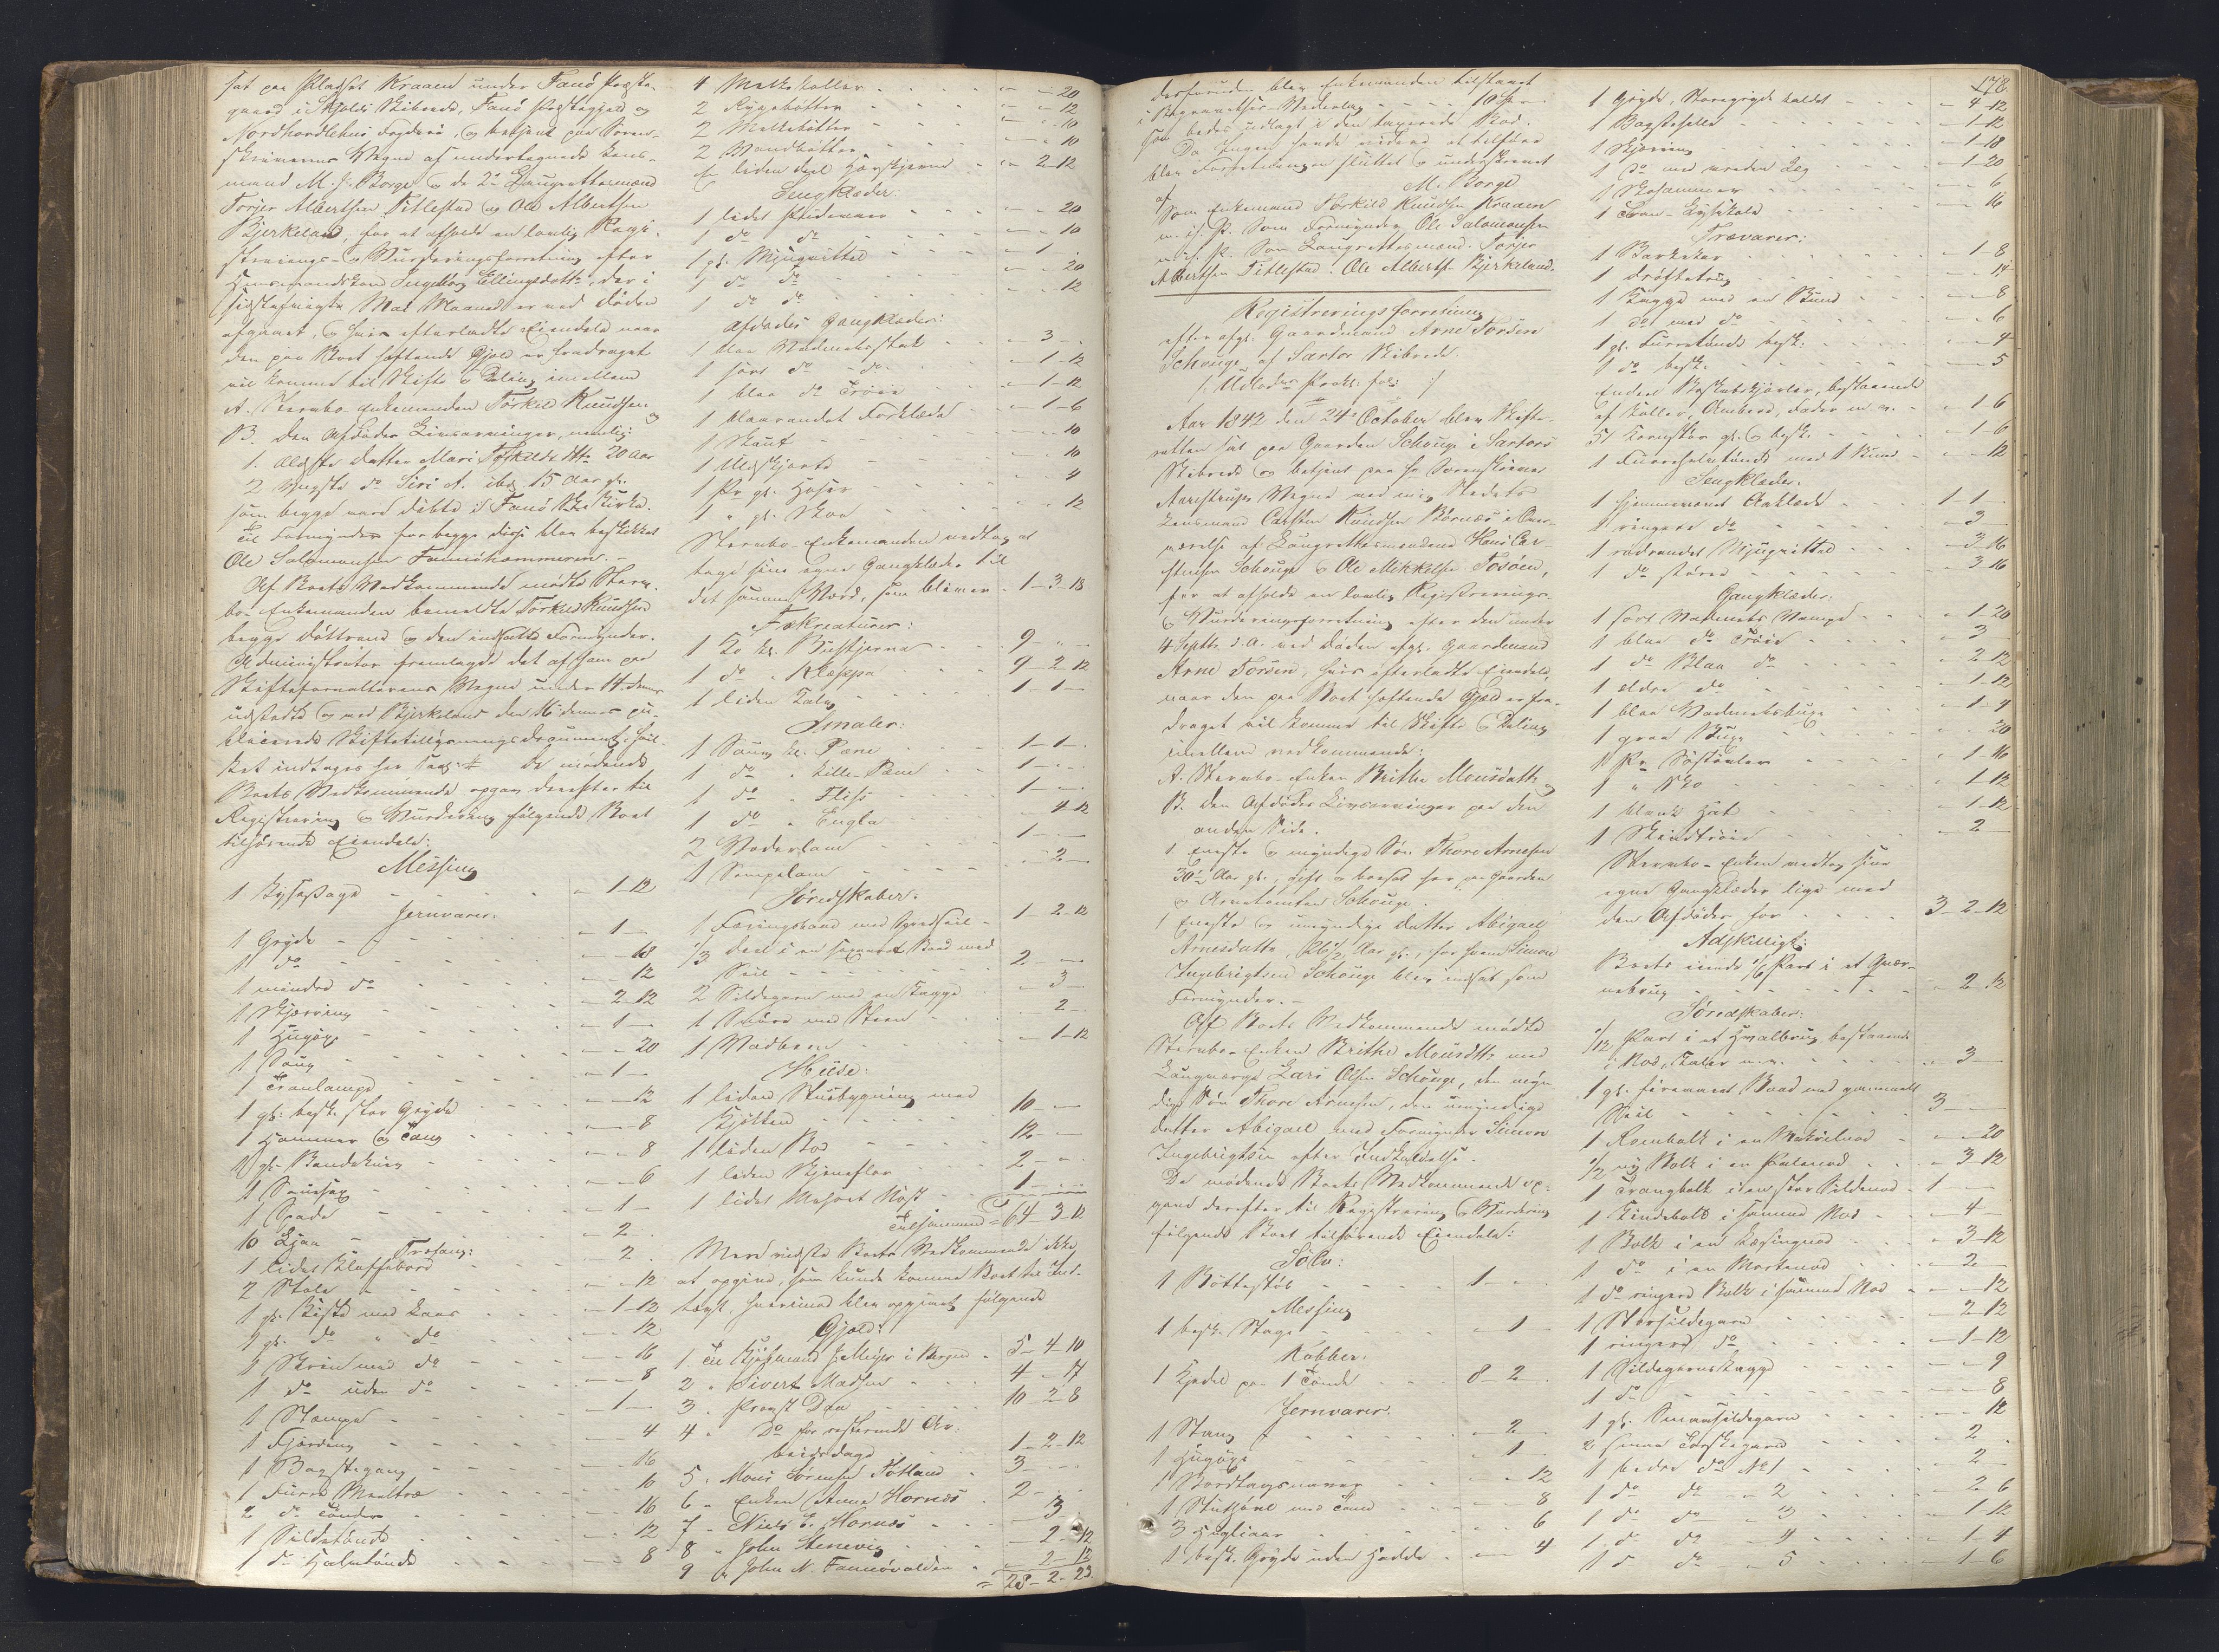 sat paa Pladset Kraaen under Fanø Præste-
gaard i Skjolds Skibrede, Fanø Præstegjeld og
Nordhordlehns Fogderi, og betjent paa Soren-
skriverens Vegne af undertegnede Lens-
mand M. J. Borge og de 2de Laugrettesmænd
Torger Albertsen Titlestad og Ole Albertsen
Bjerkeland, for at afholde en lovlig Regi-
strerings- og Vurderingsforretning efter
Huusmandskone Ingeborg Ellingsdatter, der i
sidstafvigte Mai Maaned er ved Døden
afgaaet, og hvis efterladte Eiendele naar
den paa Boet heftende Gjeld er fradraget
vil komme til Skifte og Deling imellem
A. Sterbo-Enkemanden Torkild Knudsen og
B. den Afdødes Livsarvinger, nemlig:
1. ældste Datter Mari Torkildsdtr 20 Aar
2 yngste do Siri A. ibd. 15 Aar gl.
som begge ere døbte i Fanø Kirke.
Til Formynder for begge disse blev beskikket
Ole Salomonsen Fannøhammeren.
Af Boets Vedkommende mødte Sterv-
bo-Enkemanden bemeldte Torkild Knudsen
begge Døttrene og den indsatte Formynder.
Administrator fremlagde det af ham paa
Skifteforvalterens Vegne under 14 dennes
udstedte og ved Bjerkeland den 16 dennes
Skiftetillysningsdocument, hvil-
ket indtages her De mødende
Boets Vedkommende opgav derefter til
Registrering og Vurdering følgende Boet
tilhørende Eiendele:
Messing
1 Lysestage - 1-12
Jernvarer:
1 Gryde - 1 -
1 do - 18
1 mindre do - 12
1 Skjæring - 2-12
1 Hugøxe - 1 -
1 Saug - 20
1 Tranlampe - 1 -
1 gl. besk. stor Gryde - 12
1 Hammer og Tang - 8
1 gl. Baandekniv - 8
1 Sauesax - 6
1 Spade - 1 -
10 Ljaa - 2 -
Træfang:
1 lidet Klaffebord 2
2 Stole - 12
1 gl. Kiste med Laas - 1-12
1 gl. do " do - 12
1 Skrin med do - 16
1 do uden do - 8
1 Stampe - 1 -
1 Fjerding - 4
1 Bagstegang - 16
1 Furre Meeltro - 10
2 do Tønder - 16
1 Sildetønde - 12
1 do Halvtønde - 8
4 Melkekoller - 20
2 Rygebøtter - 12
2 Melkebøtter - 10
2 Vandbøtter - 10
En liden deel Høvskjerne - 2-12
Sengklæder:
1 lidet Hudevær - 20
1 do do - 10
1 gl. Myugvitted - 1 -
1 do do - 20
1 do do - 12
Afdødes Gangklæder:
1 blaa Vadmelsstak - 3 -
1 sort do do - 1-12
1 blaa do Trøie - 1-12
1 blaarandet Forklæde - 1-6
1 Skaut - 10
1 Uldskjorte - 10
1 Pr gl. Hoser - 4
1 " gl. Skoe - 12
Stervbo-Enkemanden vedtog at
tage sine egne Gangklæder til
det samme Værd, som bliver - 1-3-18
Fækreaturer:
1 Ko kl. Busstjerna 9 - -
1 do " Kleppa 9-2-12
1 liden Kalv 1-1-
Smaler:
1 Saug kl. Pæne 1-1-
1 do " Lille-Pæn 1 - -
1 do " Fliss 1 - -
1 do " Engla - 4-12
2 Væderlam 1 - -
1 Sempelam - 2 -
Søredskaber.
1 Færingsbaad med Spredseil - 1-2-12
1/3 Deel i en Sexæret Baad med
Seil 2 - -
2 Sildegarn med en Kagge - 3 -
1 Snøre med Steen - 2 -
1 Vadbeen - 1-12
Huse:
1 liden Stuebygning med
Kjøkken 10 - -
1 liden Bod 12 - -
1 liden Skjeneflor 2 - -
1 lidet Nøst 1 - -
Tilsammen = 64-3-12
Mere vidste Boets Vedkommende ikke
at opgive, som kunde komme Boet til Ind-
tægt, hvorimod blev opgivet følgende
Gjeld:
1. Til Kjøbmand J. Meyer i Bergen - 5-4-10
2 " Sivert Madsen 4 - 17
3 " Provst Dæ 10-2-8
4 " Do for resterende Ar-
beidsdage 1-2-12
5 " Mons Sørensen Totland 3 - -
6 " Enken Anna Hornes 2 - -
7 " Niels E. Hornes 3
8 " John Stenevig - 2-12
9 " John N. Fannevalden - 2-12
= 28-2-23.
desforuden blev Enkemanden tilstaaet
i Begravelses-Vederlag - 10 Spd -
som bedes udlagt i den taxerede Bod.
Da Ingen havde videre at tilføre
blev Forretningen sluttet og underskrevet
af M. Borge
Som Enkemand Torkild Knudsen Kraaen
m. i. P. Som Formynder Ole Salomonsen
m. i. P. Som Laugrettesmænd. Torjer
Albertsen Titlestad. Ole Alberts. Bjerkeland.
Registreringsforretning
efter afgl. Gaardmand Arne Torsen
Schouge af Sartor Skibrede.
Aar 1842 den 24de October blev Skifte-
retten sat paa Gaarden Schouge i Sartors
Skibrede og betjent paa Hr Sorenskriver
Aarestrups Vegne ved mig Stedets
Lensmand Carsten Knudsen Børnes i Over-
værelse af Laugrettesmændene Hans Car-
stensen Schouge og Ole Mikkelsen Tosøen,
for at afholde en lovlig Registrerings-
og Vurderingsforretning efter den under
4 Septbr. d. A. ved Døden afgl. Gaardmand
Arne Torsen, hvis efterladte Eiendele,
naar den paa Boet heftende Gjeld er fra-
draget vil komme til Skifte og Deling
imellem vedkommende:
A. Stervbo-Enken Brithe Monsdatter og
B. den Afdødes Livsarvinger paa den
anden Side.
1 Eneste og myndige Søn Thore Arnesen
30 1/2 Aar gl., gift og bosat her paa Gaarden
og Schouge.
1 Eneste og umyndige Datter Abigael
Arnesdatter, 26 1/2 Aar gl., for hvem Simon
Ingebrigtsen Schouge blev indsat som
Formynder. -
Af Boets Vedkommende mødte
Stervbo-Enken Brithe Monsdtr med
Laugværge Lars Olsen Schouge, den myn-
dige Søn Thore Arnesen, den umyndige
Datter Abigael med Formynder Simon
Ingebrigtsen efter Indkaldelse.
De mødende Boets Vedkommende op-
gave derefter til Registrering og Vurdering
følgende Boet tilhørende Eiendele:
Sølv:
1 Bøttestøb 1 - -
Messing
1 besk. Stage - 1
Kobber:
1 Kjedel paa 1 Tønde 8-2 -
Jernvarer.
1 Stang - 2 -
1 Hugøxe - 1 -
1 Bordtagsnaver - 12
1 Skuthøvel med Tand - 8
3 Hugliaar - 6
1 besk. Gryde uden Hadde - 4
178.
1 Gryde, Storegryde kaldet - 4-12
1 Bagstehelle - 1-12
1 Skjæring - 1-18
1 do med mindre Læg - 1-20
1 Skohammer - 6
1 Tran-Lysekole - 16
Trævarer:
1 Barkekar - 1-8
1 Drøftetrug - 14
1 Kagge med en Bund - 8
1 do med do - 6
1 gl. Furretønde besk. - 4
1 do besk. - 5
Endeel Boskabskjørler, bestaaende
af Koller, Ambere, Dader m. v. - 1-6
51 Kornstør gl. og besk. - 1-6
1 Furrehalvtønde med 1 Bund - 12
Sengklæder:
1 hjemmevævet Aaklæde 1-1-
1 ringere do - 3 -
1 rødrandet Myugvitted - 3-16
1 do større - 3-16
Gangklæder:
1 sort Vadmels Vampe - 1-20
1 blaa do Trøie - 3 -
1 do Blaa do - 2-12
1 ældre do - 1-12
1 blaa Vadmelsbuxe - 1-4
1 graa Buxe - 20
1 Pr. Søstøvler - 1-16
1 " Sko - 1-12
1 blank Hat - 1-12
1 Skindtrøie - 2 -
Stervbo-Enken vedtog sine
egne Gangklæder lige med
den Afdødes for 3-2-12
Adskilligt:
Boets eiende 1/6 Part i et Qvær-
nebrug - 2-12
Søredskaber:
1/12 Part i et Hvalbrug bestaaende
i Nod, Taler m.v. - 3 -
1 gl. fireæret Baad med gammelt
Seil 3 - -
1 Rombolk i en Makrelnod - 20
1/2 ny Bolk i en Palenod - 3-12
1 Trangbolk i en stor Sildenod - 1 - -
1 Kindebolk i samme Nod - 4 -
1 Bolk i en Læsingnod - 3-12
1 do i en Mortenod - 2 -
1 do ringere Bolk i samme Nod - 12
1 Storsildegarn - 2-12
1 ringere do - 1-12
1 Sildegarnskagge - 9
1 do - 8
1 gl. Smaasildegarn - 12
2 smaa Torskegarn - 2 -
1 bedre do No 1 - 2 -
1 do do - 2 - 2-6
1 do do - 3 - 1-12
1 do do - 4 - 1-4
1 do do - 5 - 1-6